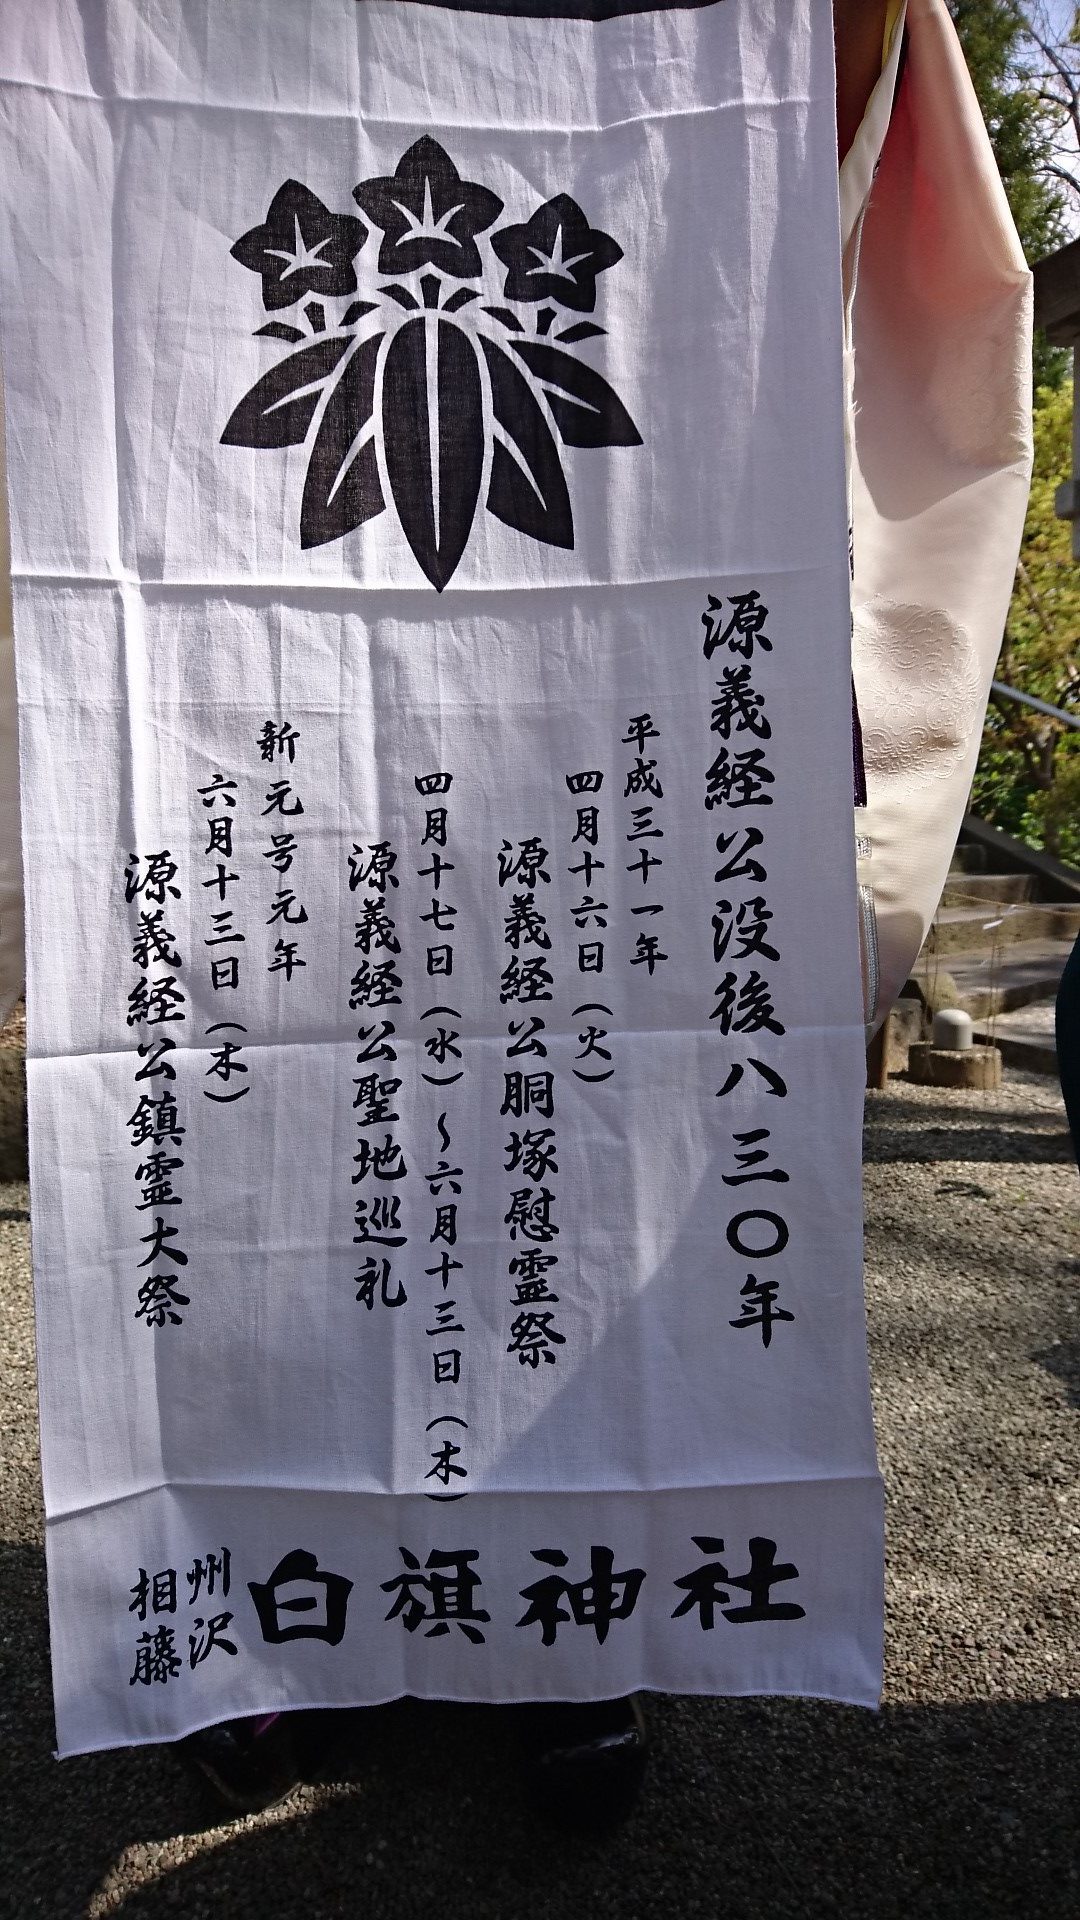 源義経公没後八三〇年
平成三十一年
四月十六日（火）
源義経公胴塚慰霊祭
四月十七日（水）～六月十三日（木）
源義経公聖地巡礼
新元号元年
六月十三日（木）
源義経公鎮霊大祭
相州
藤沢
白旗神社